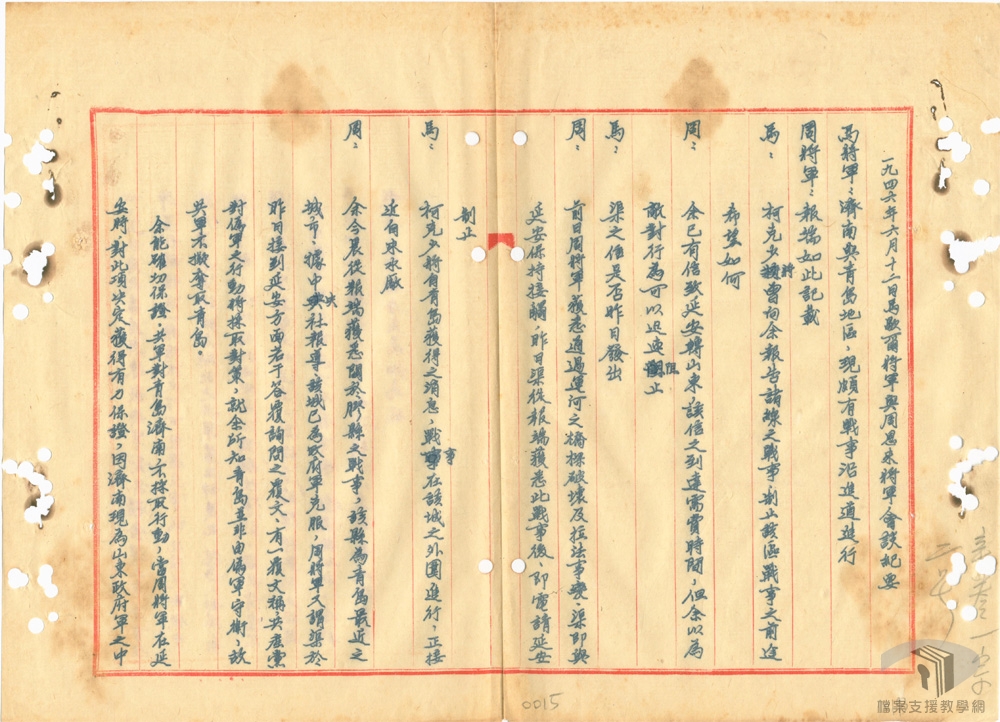 一九四六年六月十二日馬歇爾將軍與周恩來將軍會談紀要
馬將軍：濟南與青島地區，現頗有戰事沿進通進行
周將軍：報端如此記載
馬：柯克少將曾向余報告諸樣之戰事，制止該區戰事之前途
希望如何
周：余已有信致延安轉山東，該信之到達需費時間，但余以為
敵對行為可以迅速阻止
馬：渠之信是否昨日發出
周：前日周將軍獲悉通過運河之橋樑破壞及拉法事變，渠即與
延安保持接觸，昨日渠從報端獲悉此戰事後，即電請延安
制止
馬：柯克少將有青島獲得之消息，戰事在該城之外圍進行，正接
近自來水廠
周：余今晨從報端獲悉關於膠縣之戰事，該縣為青島最近之
城市，據中央社報導，該城已為政府軍克服，周將軍又謂渠於
昨日接到延安方面若干答覆詢問之覆文，有一覆文稱共產黨
對偽軍之行動將採取對策，就余所知青島並非由偽軍守衛，故
共軍不擬奪取青島。
余能確切保證，共軍對青島濟南不採取行動，當周將軍在延
安時對此項決定獲得有力保證，因濟南現為山東政府軍之中
0015
檔案支援教學網